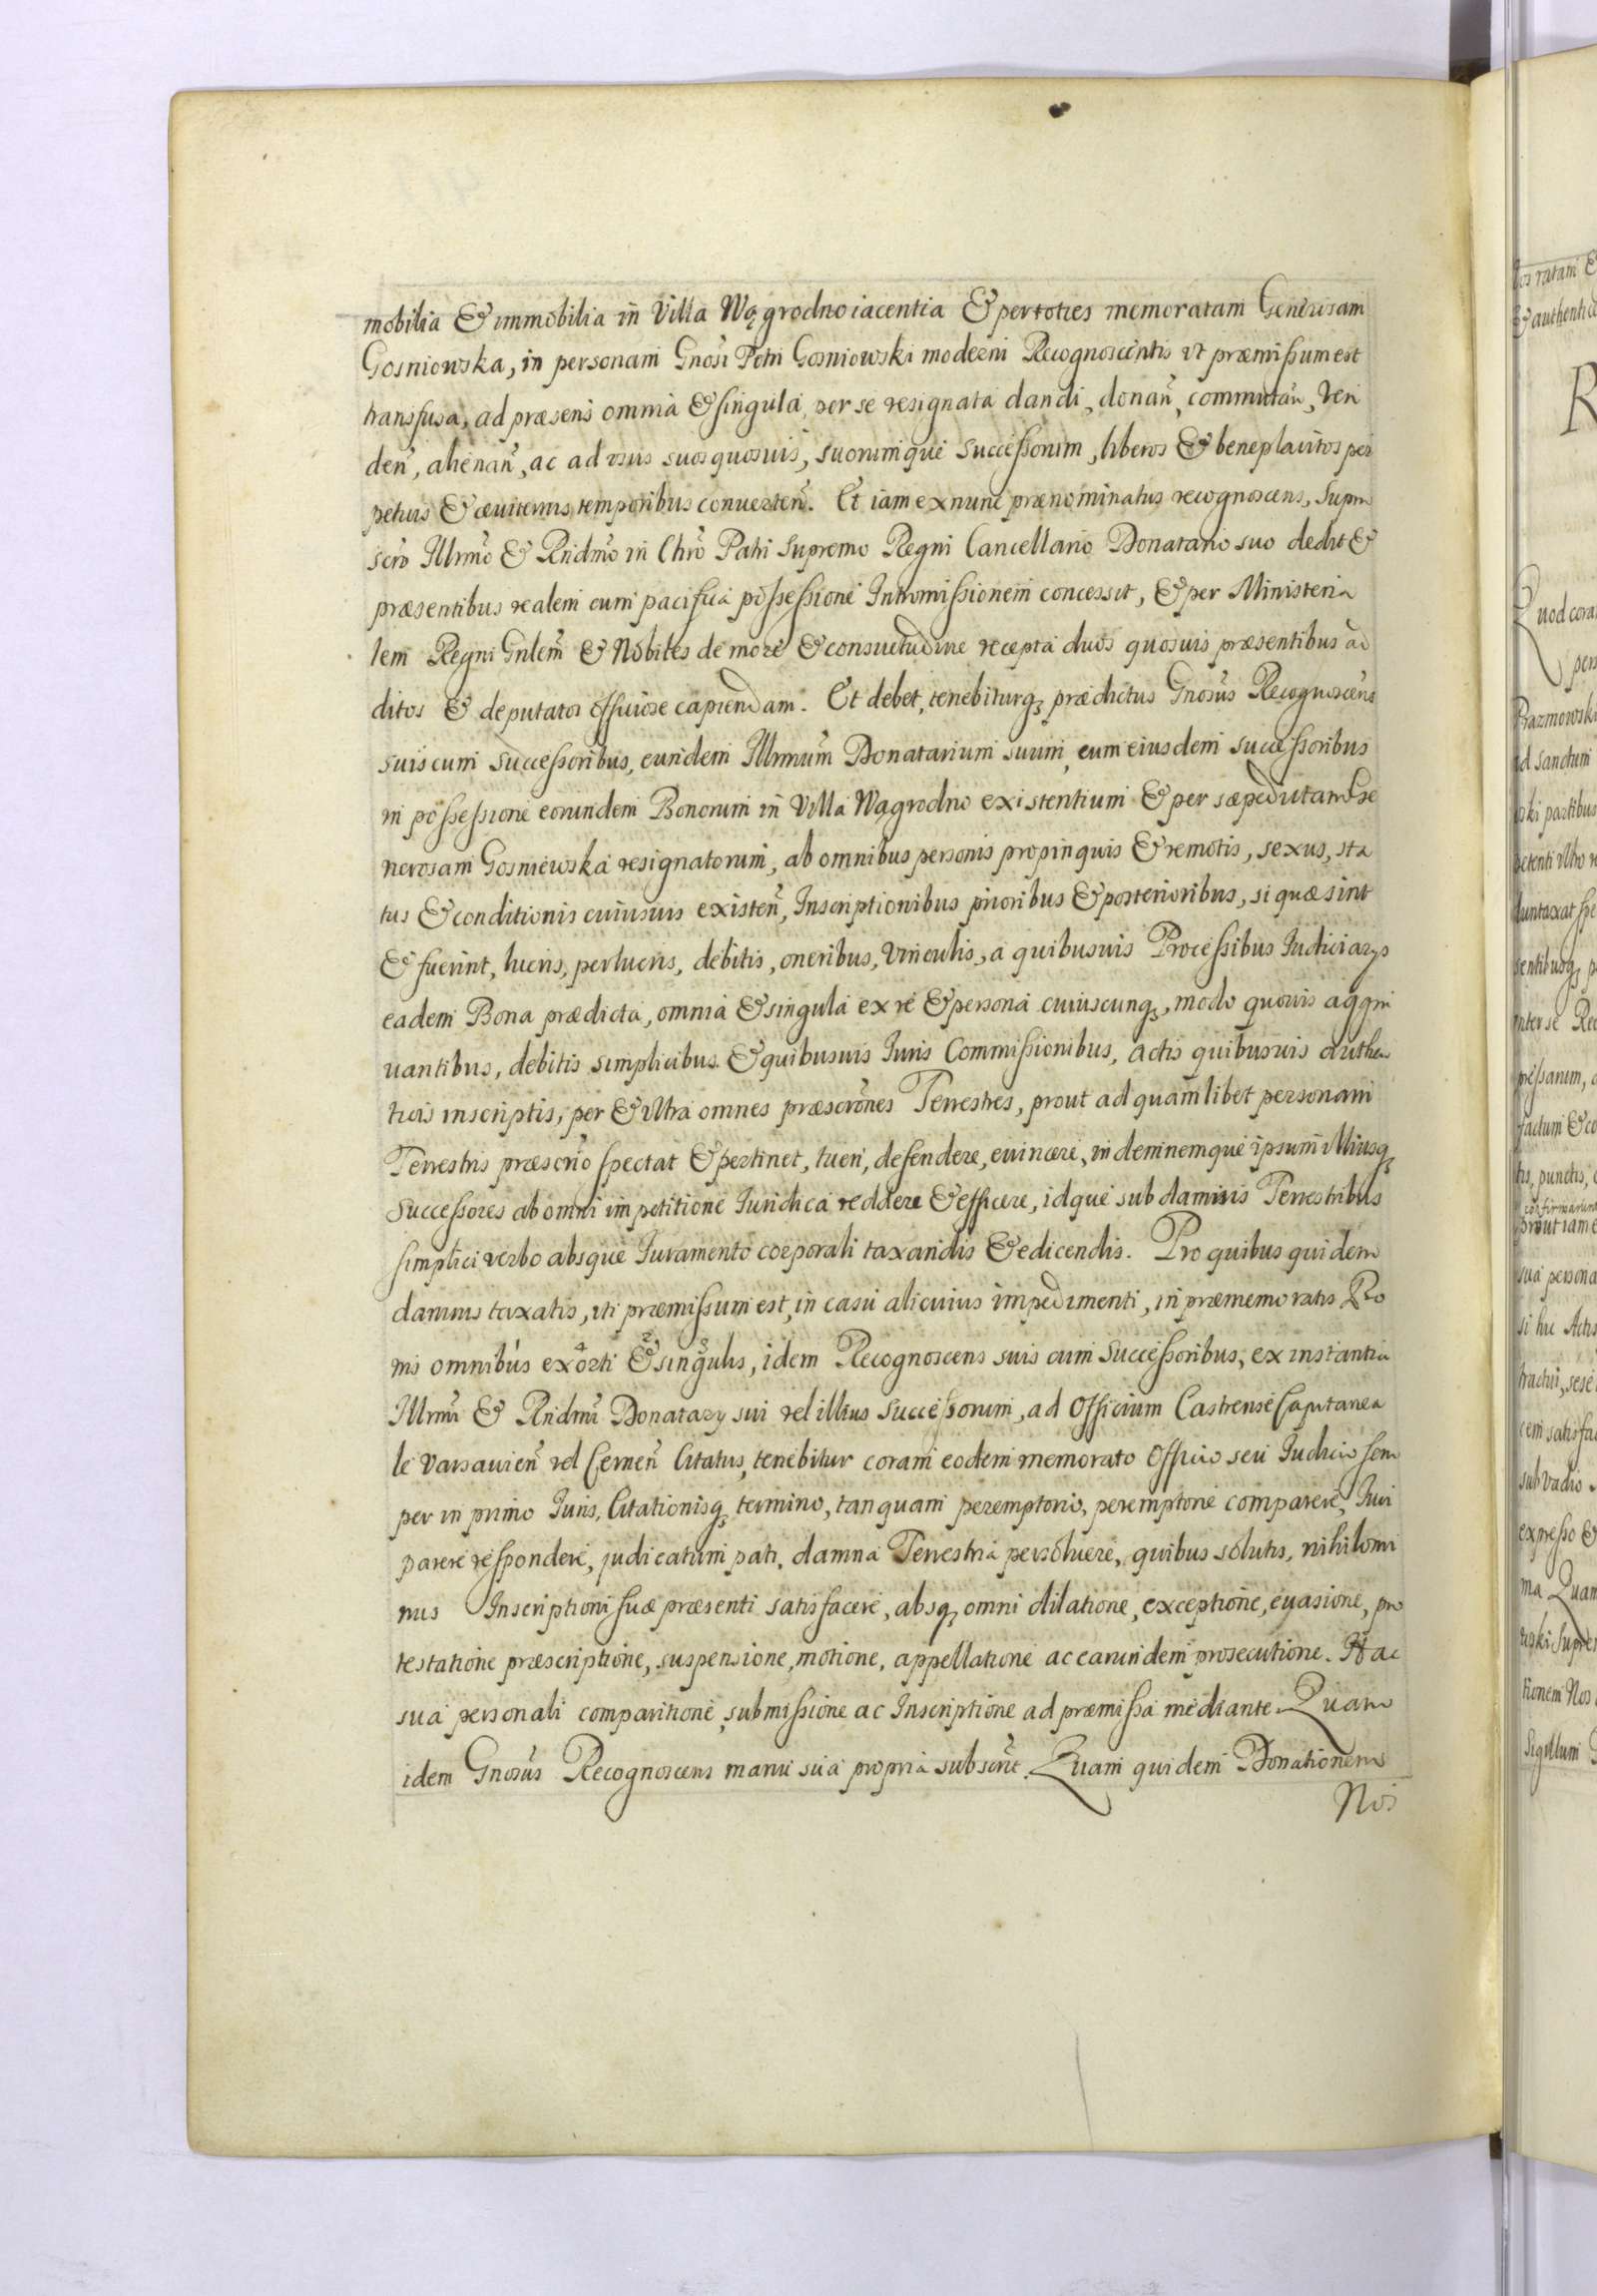 mobilia & immobilia in Villa Wągrodno iacentia & per toties memoratam Generosam
Gosniowska, in personam Gnosi Petri Gosniowski moderni Recognoscentis vt præmissum est
transfusa, ad præsens omnia & singula per se resignata dandi, donañ, commutañ, Ven
deñ, alienañ, ac ad vsus suos quosuis, suorumque Successorum, liberos & beneplacitos per
petuis & æuiternis temporibus conuerteñ. Et iam ex nunc prænominatus recognoscens, Supra
scrõ Illrmõ & Rndmõ in Chrõ Patri Supremo Regni Cancellario Donatario suo dedit &
præsentibus realem cum pacifica possessione Intromissionem concessit, & per Ministeria
lem Regni Gnlem & Nobiles de more & consuetudine recepta duos quosuis præsentibus ad
ditos & deputatos officiose capiendam. Et debet, tenebiturq; prædictus Gnosus Recognoscens
suis cum successoribus, eundem Illrmum Donatarium suum, cum eiusdem successoribus
in possessione eorundem Bonorum in Villa Wągrodno existentium & per sæpedictam Ge
nerosam Gosniewska resignatorum, ab omnibus personis propinquis & remotis, sexus, sta
tus & conditionis cuiusuis existeñ, Inscriptionibus prioribus & posterioribus, si quæ sint
& fuerint, lucris, perlucris, debitis, oneribus, vinculis, a quibusuis Processibus Iudiciarys
eadem Bona prædicta, omnia & singula ex re & persona cuiuscunq;, modo quouis aggra
uantibus, debitis simplicibus & quibusuis Iuris Commissionibus, actis quibusuis authen
ticis inscriptis, per & vltra omnes præscrones Terrestres, prout ad quamlibet personam
Terrestris præscrio spectat & pertinet, tueri, defendere, euincere, indemnemque ipsum illiusq;
Successores ab omni impetitione Iuridica reddere & efficere, idque sub damnis Terrestribus
simplici verbo absque Iuramento corporali taxandis & edicendis. Pro quibus quidem
damnis taxatis, vti præmissum est, in casu alicuius impedimenti, in præmemoratis Bo
nis omnibus exorti & singulis, idem Recognoscens suis cum Successoribus, ex instantia
Illrmi & Rndmi Donatary sui vel illius Successorum, ad Officium Castrense Capitanea
le Varsauieñ vel Cerneñ Citatus, tenebitur coram eodem memorato Officio seu Iudicio sem
per in primo Iuris, Citationisq; termino, tanquam peremptorio, peremptorie comparere, Iuri
parere respondere, judicatum pati, damna Terrestria persoluere, quibus solutis, nihilomi
nus Inscriptioni suæ præsenti satisfacere, absq; omni dilatione, exceptione, euasione, pro
testatione præscriptione, suspensione, motione, appellatione ac earundem prosecutione. Hac
sua personali comparitione, submissione ac Inscriptione ad præmissa mediante. Quam
idem Gnosus Recognoscens manu sua propria subscrit. Quam quidem Donationem
Nos